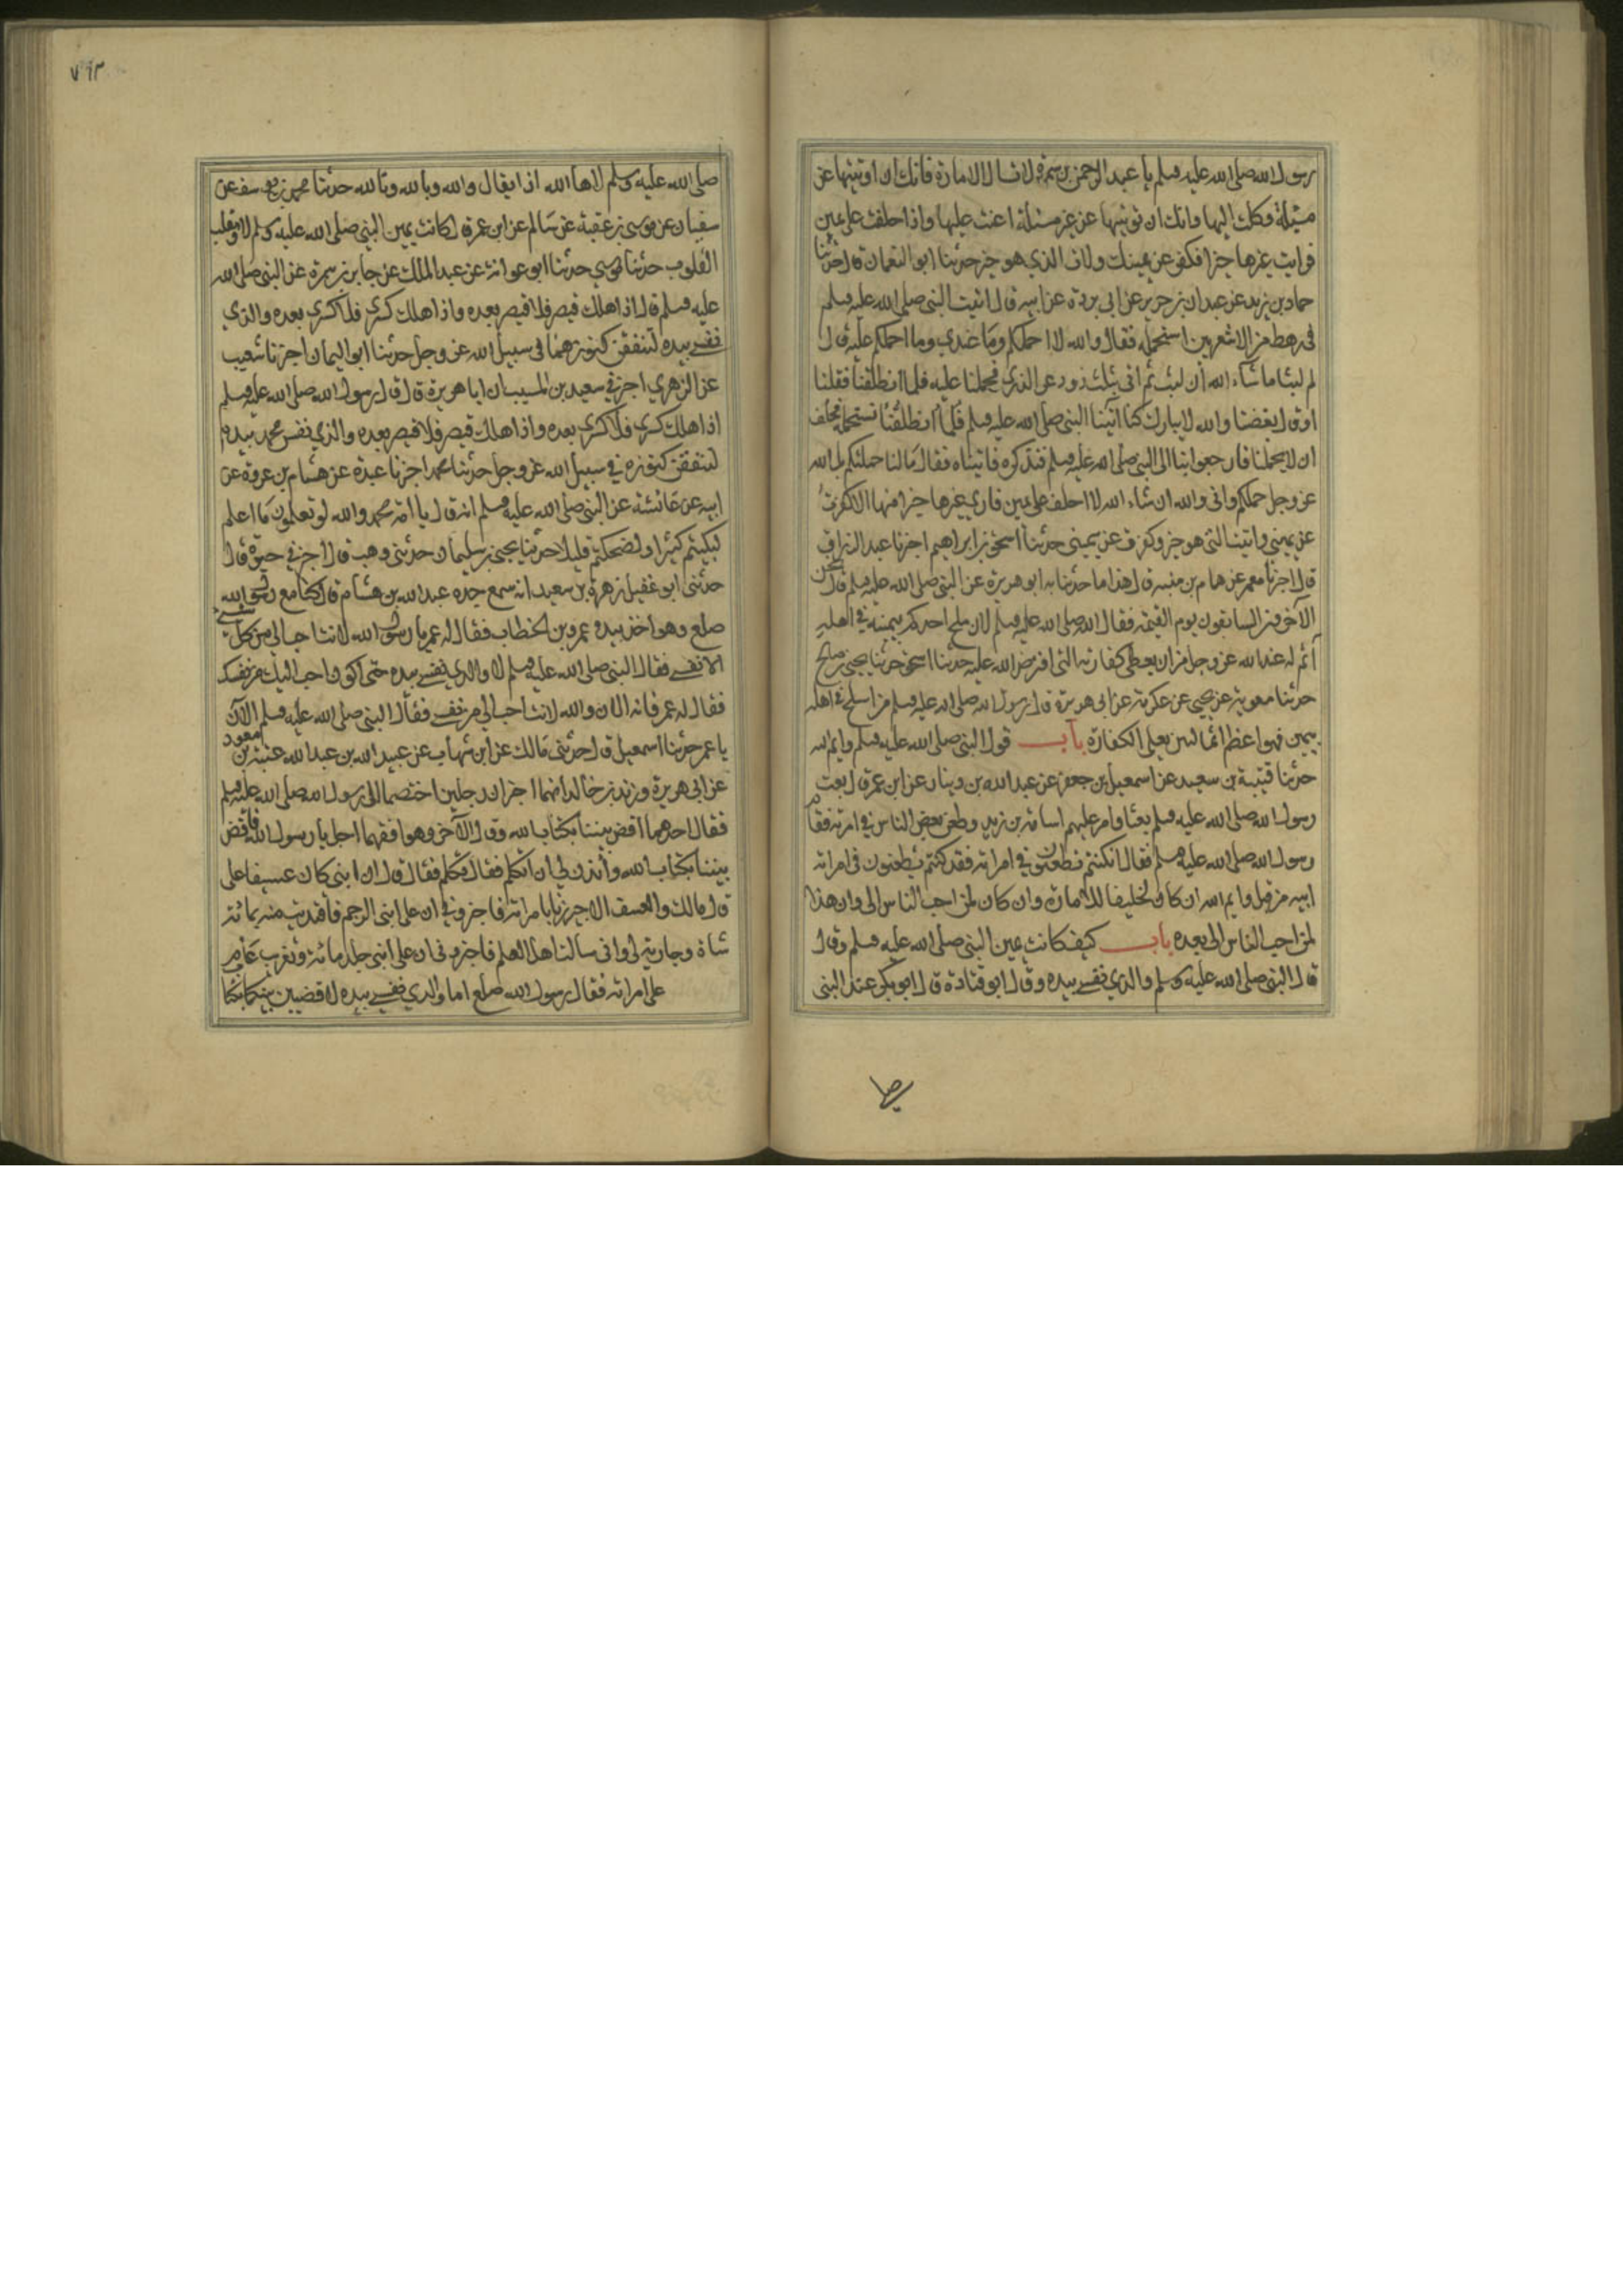 رسول الله صلى الله عليه وسلم يا عبد الرحمن بن سمرة لا تسال الامارة فانك ان اوتيتها عن
مسئلة وكلت اليها وانك ان توتيتها عن غير مسئلة اعنت عليها واذا حلفت على يمين
فرايت غيرها خيرا فكفر عن يمينك وات الذي هو خير حدثنا ابو النعمان قال حدثنا
حماد بن زيد عن غيلان بن جرير عن ابي بردة عن ابيه قال اتيت النبي صلى الله عليه وسلم
في رهط من الاشعريين استحمله فقال والله لا احملكم وما عندي وما احملكم عليه قال
ثم لبثنا ما شاء الله ان نلبث ثم اتى بثلث ذود غر الذرى فحملنا عليه فلما انطلقنا فقلنا
او قال بعضنا والله لا يبارك لنا اتينا النبي صلى الله عليه وسلم فلما انطلقنا نستحمله فحلف
ان لا يحملنا فارجعوا بنا الى النبي صلى الله عليه وسلم فنذكره فاتيناه فقال ما انا حملتكم بل الله
عز وجل حملكم واني والله ان شاء الله لا احلف على يمين فارى غيرها خيرا منها الا كفرت
عن يميني واتيت التي هو خير وكفرت عن يميني حدثنا اسحق بن ابراهيم اخبرنا عبد الرزاق
قال اخبرنا معمر عن همام بن منبه قال هذا ما حدثنا به ابو هريرة عن النبي صلى الله عليه وسلم قال نحن
الآخرون السابقون يوم القيمة فقال الله صلى الله عليه وسلم لان يلج احدكم بيمينه في اهله
آثم له عند الله عز وجل من ان يعطي كفارته التي افترض الله عليه حدثنا اسحق حدثنا يحيى بن صالح
حدثنا معوية عن يحيى عن عكرمة عن ابي هريرة قال رسول الله صلى الله عليه وسلم من استلج في اهله
بيمين فهو اعظم اثما ليس يعني الكفارة باب قول النبي صلى الله عليه وسلم وايم الله
حدثنا قتيبة بن سعيد عن اسمعيل بن جعفر عن عبد الله بن دينار عن ابن عمر قال بعث
رسول الله صلى الله عليه وسلم بعثا وامر عليهم اسامة بن زيد وطعن بعض الناس في امرته فقام
رسول الله صلى الله عليه وسلم فقال ان كنتم تطعنون في امراته فقد كنتم تطعنون في امراته
ابيه من قبل وايم الله ان كان لخليفا للامارة وان كان لمن احب الناس الي وان هذا
لمن احب الناس الي بعده باب كيف كانت يمين النبي صلى الله عليه وسلم وقال
قال النبي صلى الله عليه وسلم والذي نفسي بيده وقال ابو قتادة قال ابو بكر عند النبي
صلى
٧٩٣
صلى الله عليه وسلم لاها الله اذا يقال والله وبالله وتالله حدثنا محمد بن يوسف عن
سفيان عن موسى بن عقبة عن سالم عن ابن عمر قال كانت يمين النبي صلى الله عليه وسلم لا ومقلب
القلوب حدثنا موسى حدثنا ابو عوانة عن عبد الملك عن جابر بن سمرة عن النبي صلى الله
عليه وسلم قال اذا هلك قيصر فلا قيصر بعده واذا هلك كسرى فلا كسرى بعده والذي
نفسي بيده لتنفقن كنوزهما في سبيل الله عز وجل حدثنا ابو اليمان اخبرنا شعيب
عن الزهري اخبرني سعيد بن المسيب ان ابا هريرة قال قال رسول الله صلى الله عليه وسلم
اذا هلك كسرى فلا كسرى بعده واذا هلك قيصر فلا قيصر بعده والذي نفس محمد بيده
لتنفقن كنوزه في سبيل الله عز وجل حدثنا محمد اخبرنا عبدة عن هشام بن عروة عن
ابيه عن عائشة عن النبي صلى الله عليه وسلم انه قال يا امة محمد والله لو تعلمون ما اعلم
لبكيتم كثيرا ولضحكتم قليلا حدثنا يحيى بن سليمان حدثني وهب قال اخبرني حيوة قال
حدثني ابو عقيل زهرة بن سعيد انه سمع جده عبد الله بن هشام قال كنا مع رسول الله
صلع وهو اخذ بيده عمر بن الخطاب فقال له عمر يا رسول الله لانت احب الي من كل شيء
الا نفسي فقال النبي صلى الله عليه وسلم لا والذي نفسي بيده حتى اكون احب اليك من نفسك
فقال له عمر فانه الان والله لانت احب الي من نفسي فقال النبي صلى الله عليه وسلم الآن
يا عمر حدثنا اسمعيل قال حدثني مالك عن ابن شهاب عن عبيد الله بن عبد الله عتبة بن مسعود
عن ابي هريرة وزيد بن خالد انهما اخبراه ان رجلين اختصما الى رسول الله صلى الله عليه وسلم
فقال احدهما اقض بيننا بكتاب الله وقال الآخر وهو افقههما اجل يا رسول الله فاقض
بيننا بكتاب الله وأذن لي ان اتكلم فقال تكلم فقال قال ان ابني كان عسيفا على
قال مالك والعسيف الاجير زنا بامراته فاخبروني ان على ابني الرجم فافتديت منه بمائة
شاة وجارية لي واني سالت اهل العلم فاخبروني ان على ابني جلد مائة وتغريب عام
على امراته فقال رسول الله صلع اما والذي نفسي بيده لاقضين بينكما بكتا